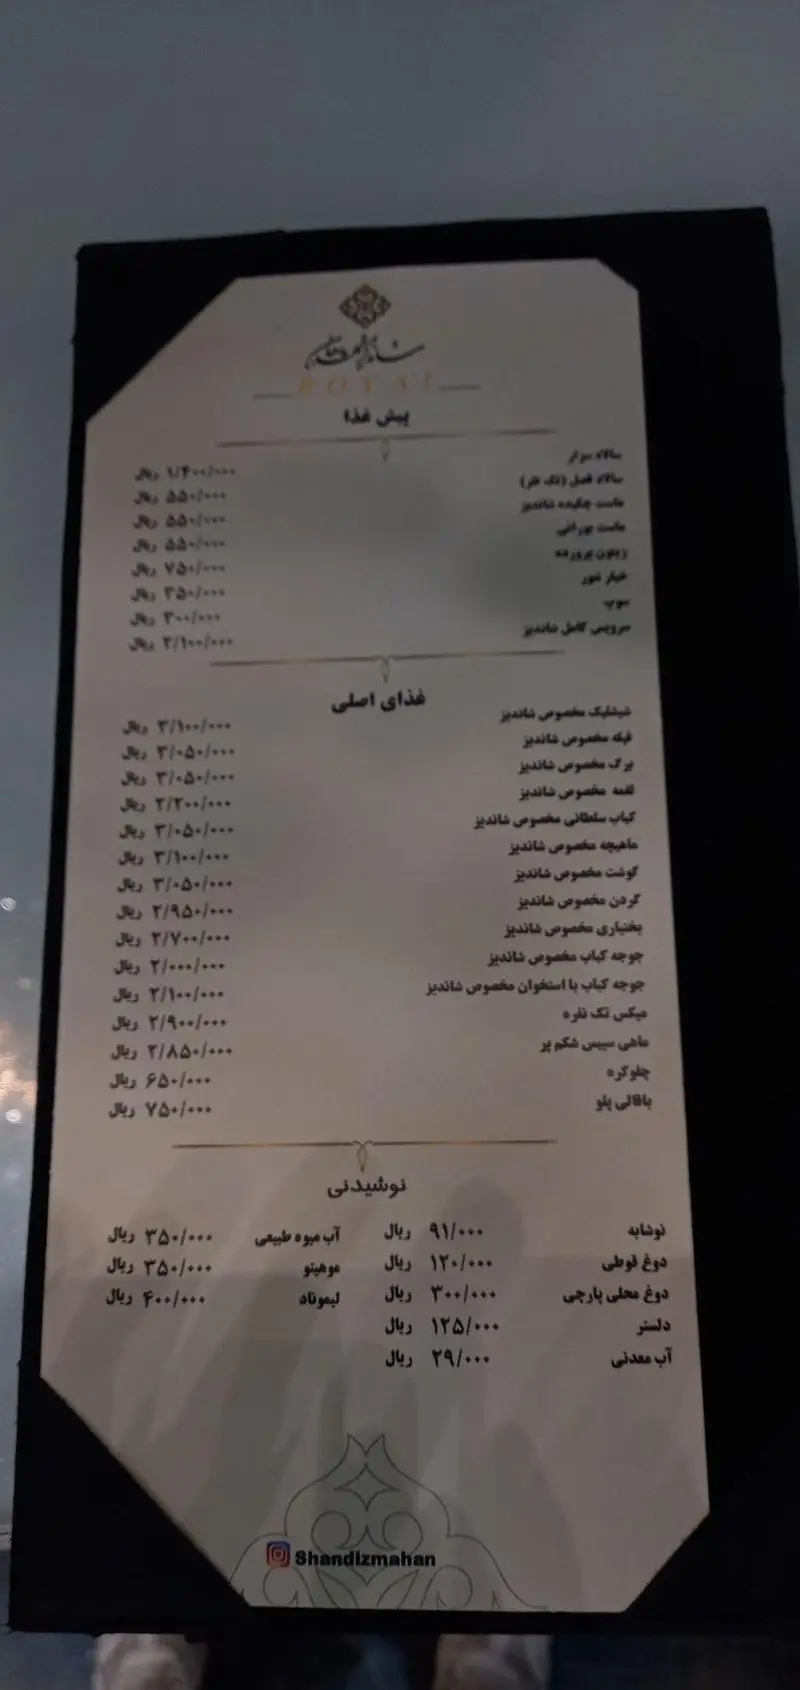 شاندیز ماهان
ROYAL
پیش غذا
سالاد سزار ۱/۴۰۰/۰۰۰ ریال
سالاد فصل (تک نفر) ۵۵۰/۰۰۰ ریال
ماست چکیده شاندیز ۵۵۰/۰۰۰ ریال
ماست بورانی ۵۵۰/۰۰۰ ریال
زیتون پرورده ۷۵۰/۰۰۰ ریال
خیار شور ۳۵۰/۰۰۰ ریال
سوپ ۳۰۰/۰۰۰ ریال
سرویس کامل شاندیز ۲/۱۰۰/۰۰۰ ریال
غذای اصلی
شیشلیک مخصوص شاندیز ۳/۱۰۰/۰۰۰ ریال
فیله مخصوص شاندیز ۳/۰۵۰/۰۰۰ ریال
برگ مخصوص شاندیز ۳/۰۵۰/۰۰۰ ریال
لقمه مخصوص شاندیز ۲/۲۰۰/۰۰۰ ریال
کباب سلطانی مخصوص شاندیز ۳/۰۵۰/۰۰۰ ریال
ماهیچه مخصوص شاندیز ۳/۱۰۰/۰۰۰ ریال
گوشت مخصوص شاندیز ۳/۰۵۰/۰۰۰ ریال
گردن مخصوص شاندیز ۲/۹۵۰/۰۰۰ ریال
بختیاری مخصوص شاندیز ۲/۷۰۰/۰۰۰ ریال
جوجه کباب مخصوص شاندیز ۲/۰۰۰/۰۰۰ ریال
جوجه کباب با استخوان مخصوص شاندیز ۲/۱۰۰/۰۰۰ ریال
میکس تک نفره ۲/۹۰۰/۰۰۰ ریال
ماهی سیبس شکم پر ۲/۸۵۰/۰۰۰ ریال
چلوکره ۶۵۰/۰۰۰ ریال
باقالی پلو ۷۵۰/۰۰۰ ریال
نوشیدنی
نوشابه ۹۱/۰۰۰ ریال آب میوه طبیعی ۳۵۰/۰۰۰ ریال
دوغ قوطی ۱۲۰/۰۰۰ ریال موهیتو ۳۵۰/۰۰۰ ریال
دوغ محلی پارچی ۳۰۰/۰۰۰ ریال لیموناد ۴۰۰/۰۰۰ ریال
دلستر ۱۲۵/۰۰۰ ریال
آب معدنی ۲۹/۰۰۰ ریال
Shandizmahan